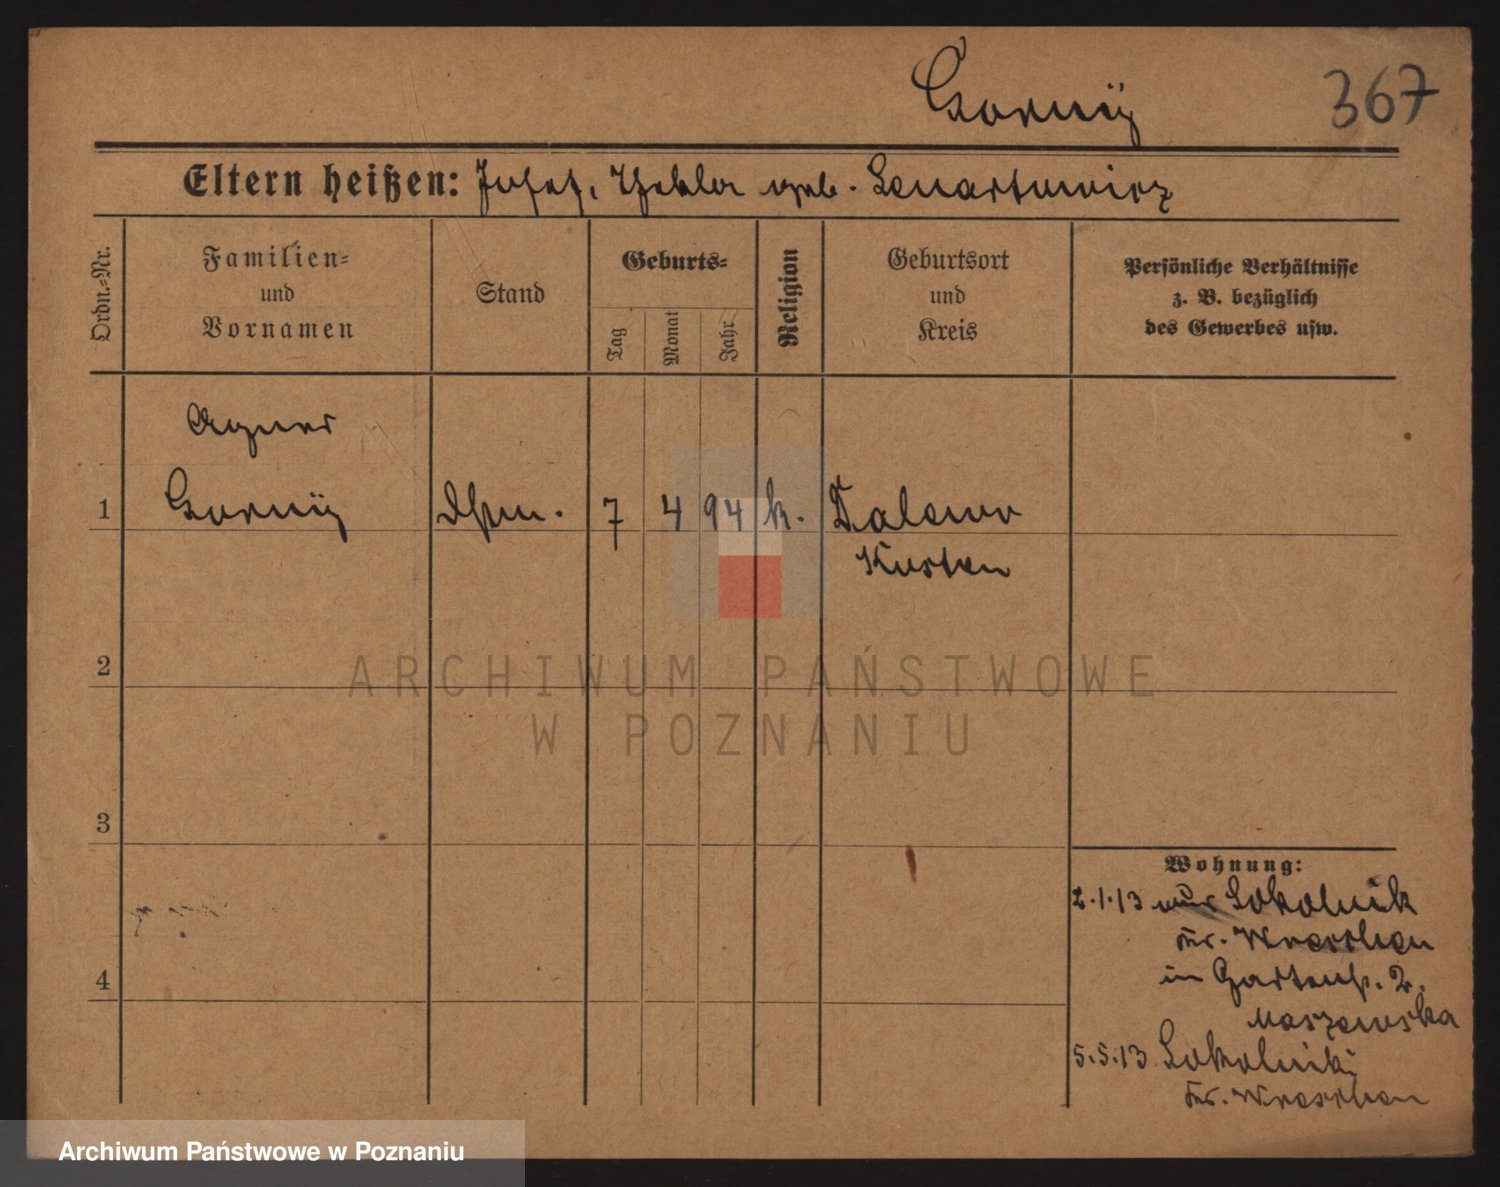 Gornÿ 367
Eltern heißen: Josef, Thekla geb. Lenartowicz
Ordn.-Nr.
Familien-
und
Vornamen
Stand
Geburts-
Tag
Monat
Jahr
Religion
Geburtsort
und
Kreis
Persönliche Verhältnisse
z. B. bezüglich
des Gewerbes usw.
Agnes
1 Gornÿ 7 4 94 k. Dalewo
Kosten
2
ARCHIWUM PAŃSTWOWE
W POZNANIU
3
4
Wohnung:
2.1.13 aus Sokolnik
Kr. Wreschen
in Gartenstr. 2.
Maszewska
5.5.13 Sokolniki
Kr. Wreschen
Archiwum Państwowe w Poznaniu